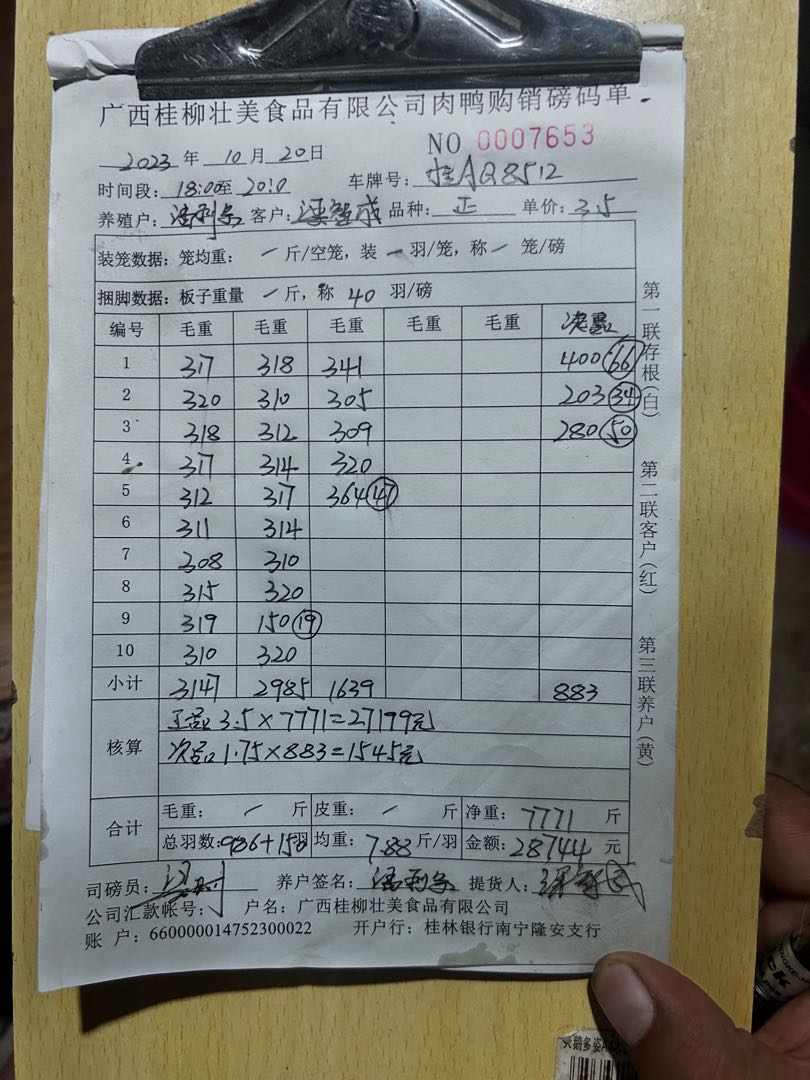 广西桂柳壮美食品有限公司肉鸭购销磅码单
NO 0007653
2023 年 10 月 20 日
时间段: 18:0至 20:0 车牌号: 桂AQ8512
养殖户: 客户: 品种: 正 单价: 3.5
装笼数据: 笼均重: / 斤/空笼, 装 / 羽/笼, 称 / 笼/磅
捆脚数据: 板子重量 / 斤, 称 40 羽/磅
编号 毛重 毛重 毛重 毛重 毛重 次品
1 317 318 341 400 66
2 320 310 305 203 34
3 318 312 309 280 50
4 317 314 320
5 312 317 364 47
6 311 314
7 308 310
8 315 320
9 319 150 19
10 310 320
小计 3147 2985 1639 883
核算
正品 3.5×7771=27199元
次品 1.75×883=1545元
合计
毛重: / 斤 皮重: / 斤 净重: 7771 斤
总羽数: 986+150羽 均重: 7.88 斤/羽 金额: 28744 元
司磅员: 养户签名: 提货人:
公司汇款帐号: 户名: 广西桂柳壮美食品有限公司
账 户: 660000014752300022 开户行: 桂林银行南宁隆安支行
第一联存根(白)
第二联客户(红)
第三联养户(黄)